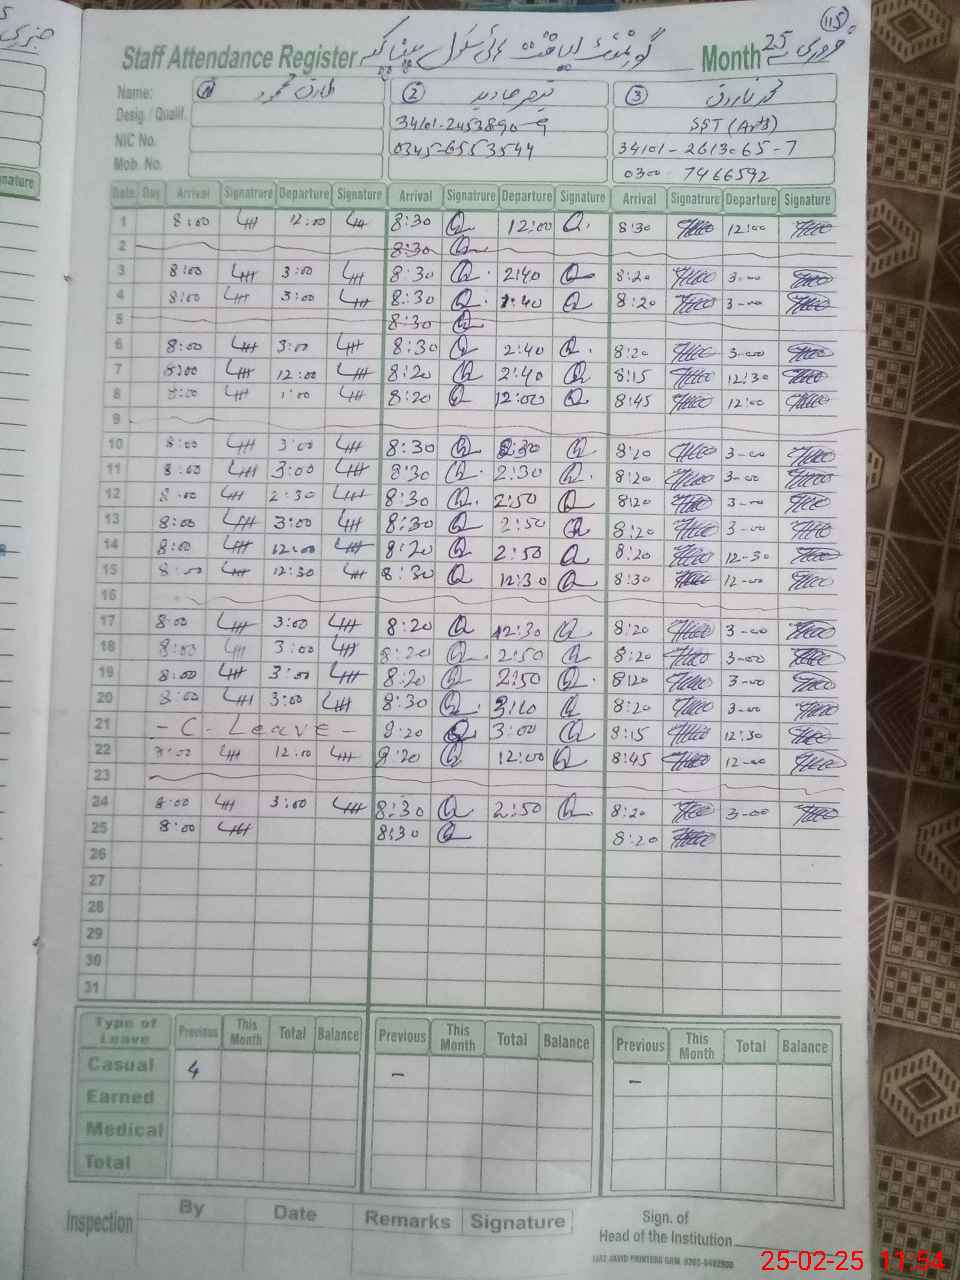 115
Staff Attendance Register گورنمنٹ ہائی سکول Month فروری 25
Name: ① طارق محمود ② قیصر جاوید ③ محمد فاروق
Desig. / Qualif. 34101-2453890-9 SST (Arts)
NIC No. 0345-6553544 34101-2613065-7
Mob. No. 0300-7466592
Date Day Arrival Signatrure Departure Signature Arrival Signatrure Departure Signature Arrival Signatrure Departure Signature
1 8:00 12:00 8:30 12:00 8:30 12:00
2 8:30
3 8:00 3:00 8:30 2:40 8:20 3-00
4 8:00 3:00 8:30 2:40 8:20 3-00
5 8:30
6 8:00 3:00 8:30 2:40 8:20 3-00
7 8:00 12:00 8:20 2:40 8:15 12:30
8 8:00 1:00 8:20 12:00 8:45 12:00
9
10 8:00 3:00 8:30 2:30 8:20 3-00
11 8:00 3:00 8:30 2:30 8:20 3-00
12 8:00 2:30 8:30 2:50 8:20 3-00
13 8:00 3:00 8:30 2:50 8:20 3-00
14 8:00 12:00 8:20 2:50 8:20 12-30
15 8:00 12:30 8:30 12:30 8:30 12-00
16
17 8:00 3:00 8:20 12:30 8:20 3-00
18 8:00 3:00 8:20 2:50 8:20 3-00
19 8:00 3:00 8:20 2:50 8:20 3-00
20 8:00 3:00 8:30 3:10 8:20 3-00
21 - C. Leave - 8:20 3:00 8:15 12:30
22 8:00 12:00 8:20 12:00 8:45 12-00
23
24 8:00 3:00 8:30 2:50 8:20 3-00
25 8:00 8:30 8:20
26
27
28
29
30
31
Type of Leave Previous This Month Total Balance Previous This Month Total Balance Previous This Month Total Balance
Casual 4 - -
Earned
Medical
Total
Inspection By Date Remarks Signature
Sign. of
Head of the Institution
25-02-25 11:54